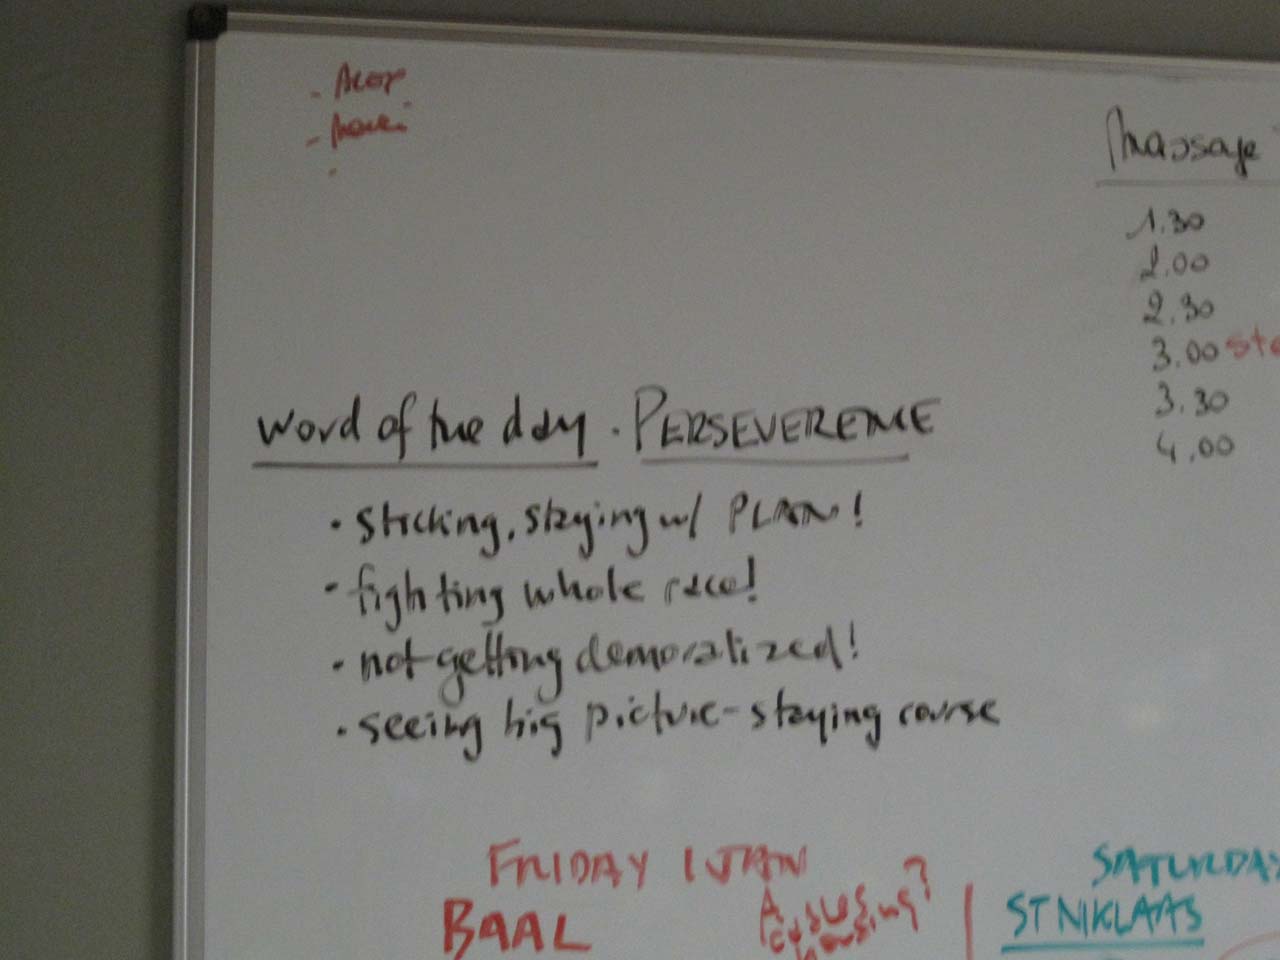 Massage
1.30
2.00
2.30
3.00
3.30
4.00
Word of the day · PERSEVERENCE
· sticking, staying w/ PLAN!
· fighting whole race!
· not getting demoralized!
· seeing big picture - staying course
FRIDAY 1 JAN
BAAL
SATURDAY
ST NIKLAAS